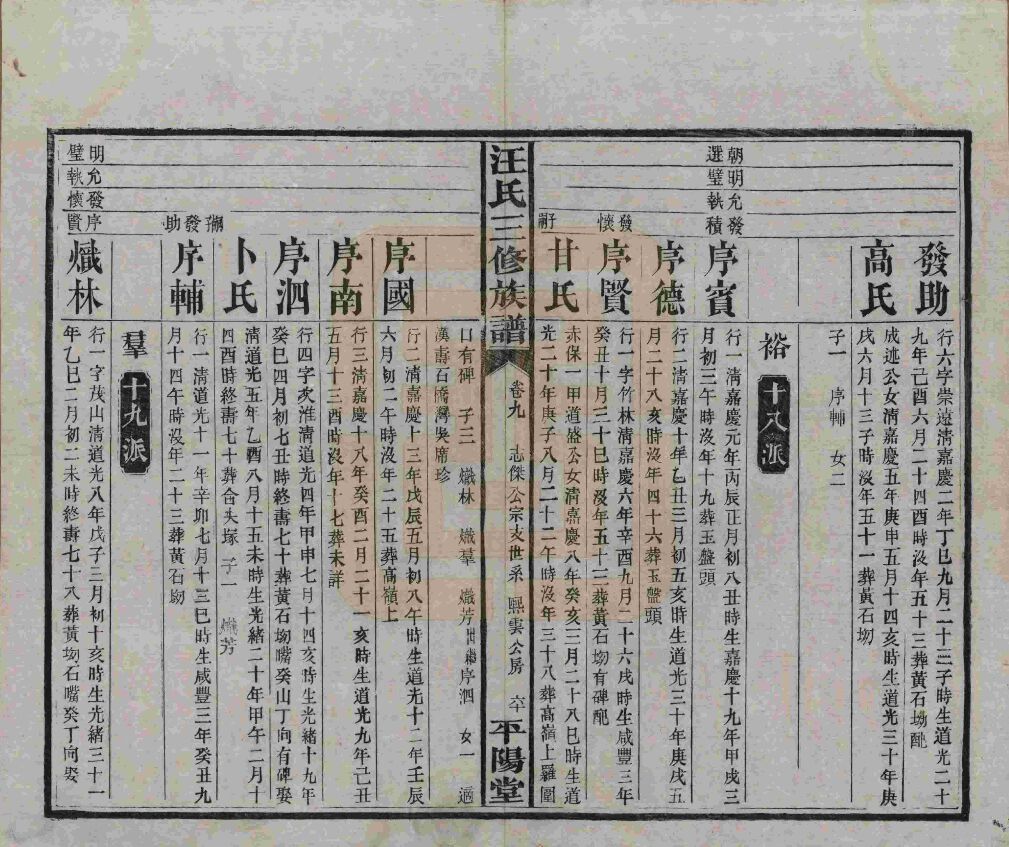 發助
行六字崇遠清嘉慶二年丁巳九月二十三子時生道光二十
九年己酉六月二十四酉時沒年五十三葬黃石坳配
高氏
成述公女清嘉慶五年庚申五月十四亥時生道光三十年庚
戌六月十三子時沒年五十一葬黃石坳
子一 序輔 女二
裕
十八派
朝明允發
選璧執積
序賓
行一清嘉慶元年丙辰正月初八丑時生嘉慶十九年甲戌三
月初三午時沒年十九葬玉盤頭
序德
行二清嘉慶十年乙丑三月初五亥時生道光三十年庚戌五
月二十八亥時沒年四十六葬玉盤頭
發懷
子嗣
序賢
行一字竹林清嘉慶六年辛酉九月二十六戌時生咸豐三年
癸丑十月三十巳時沒年五十三葬黃石坳有碑配
甘氏
赤保一甲道盛公女清嘉慶八年癸亥三月二十八巳時生道
光二十年庚子八月二十二午時沒年三十八葬高嶺上羅圍
汪氏三修族譜
卷九
志傑公宗支世系 熙雲公房
六十
平陽堂
口有碑 子三 熾林 熾羣 熾芳 序泗 女一 適
漢壽石橋灣吳席珍
序國
行二清嘉慶十三年戊辰五月初八午時生道光十二年壬辰
六月初二午時沒年二十五葬高嶺上
序南
行三清嘉慶十八年癸酉二月二十一亥時生道光九年己丑
五月十三酉時沒年十七葬未詳
序泗
行四字次淮清道光四年甲申七月十四亥時生光緒十九年
癸巳四月初七丑時終壽七十葬黃石坳嘴癸山丁向有碑娶
卜氏
清道光五年乙酉八月十五未時生光緒二十年甲午二月十
四酉時終壽七十葬合头塚 子一 熾芳
發助
序輔
行一清道光十一年辛卯七月十三巳時生咸豐三年癸丑九
月十四午時沒年二十三葬黃石坳
羣
十九派
明允發序
璧執懷賢
熾林
行一字茂山清道光八年戊子三月初十亥時生光緒三十一
年乙巳二月初二未時終壽七十八葬黃坳石嘴癸丁向娶